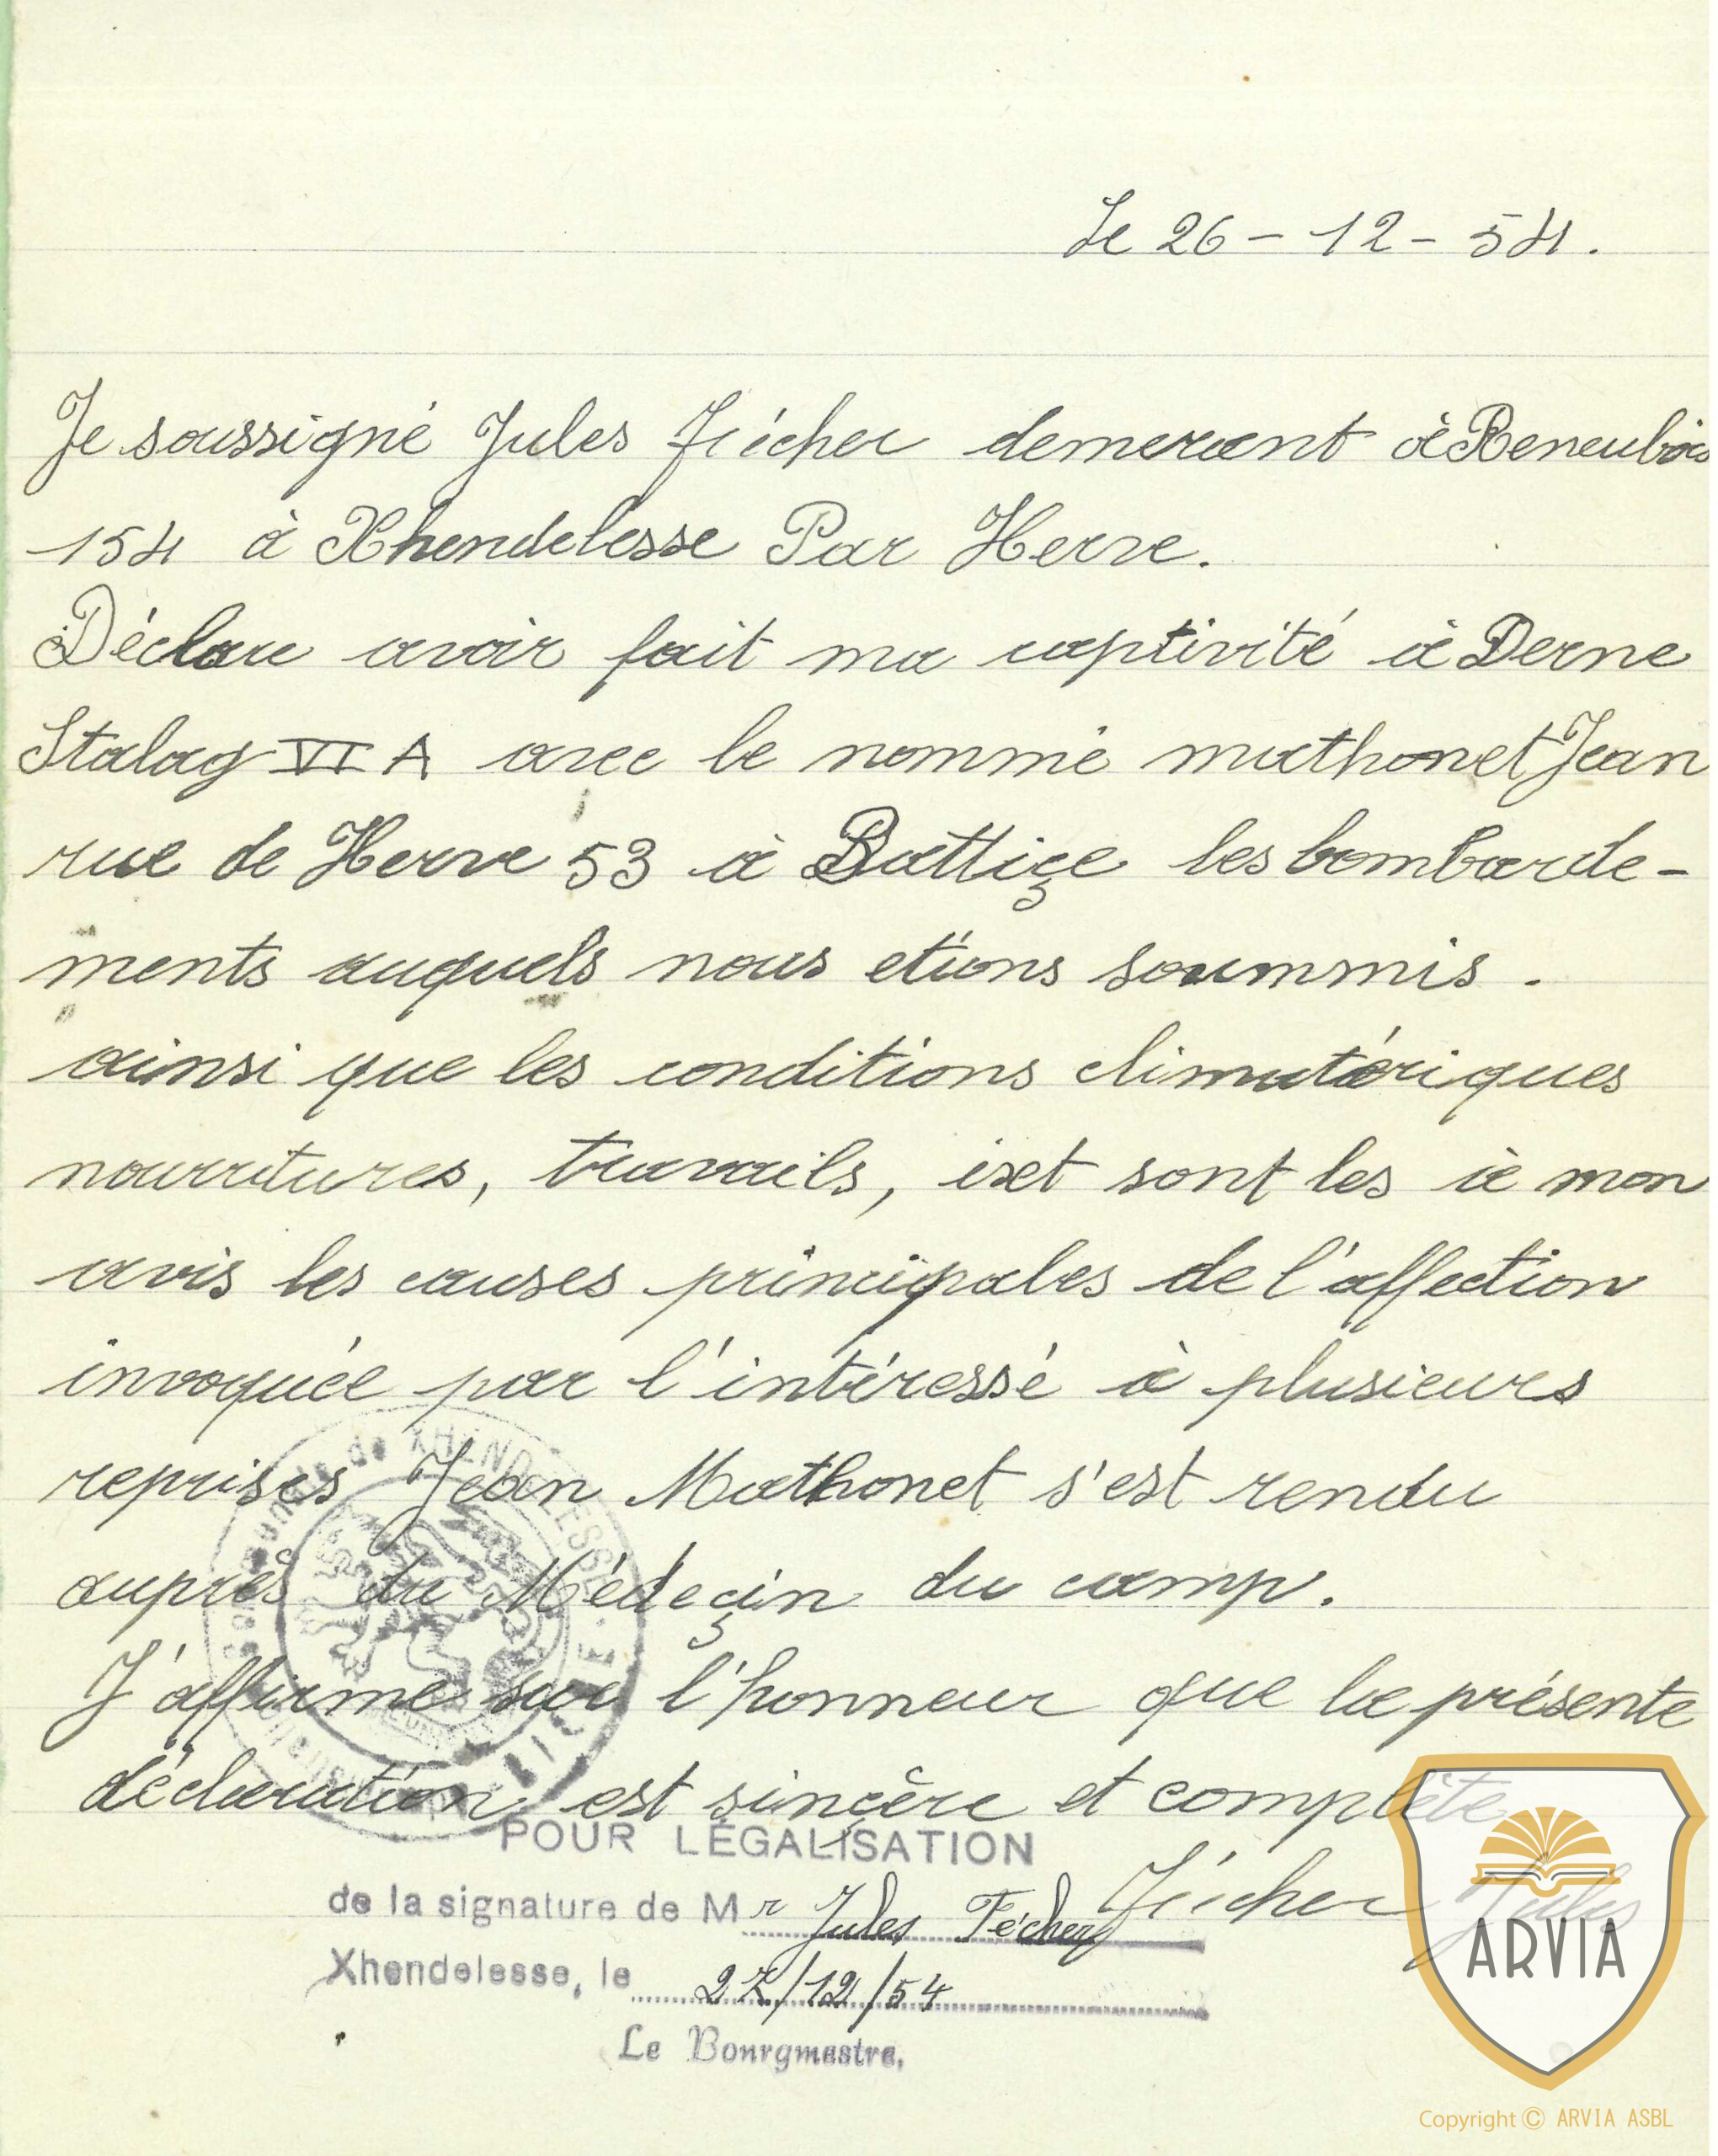 Le 26-12-54.
Je soussigné Jules Fécher demerant à Reneubois
154 à Xhendelesse Par Herve.
Déclare avoir fait ma captivité à Derne
Stalag VI A avec le nommé mathonet Jean
rue de Herve 53 à Battiçe les bombarde-
ments auquels nous etions soummis.
ainsi que les conditions climatériques
nourritures, travails, ixet sont les à mon
avis les causes principales de l'affection
invoquée par l'intéressé à plusieurs
reprises Jean Mathonet s'est rendu
auprès du Médeçin du camp.
J'affirme sur l'honneur que la présente
déclaration est sinçère et complète
Commune de XHENDELESSE
POUR LÉGALISATION
de la signature de Mr Jules Fécher
Fécher Jules
Xhendelesse, le 27/12/54
Le Bourgmestre,
ARVIA
Copyright © ARVIA ASBL